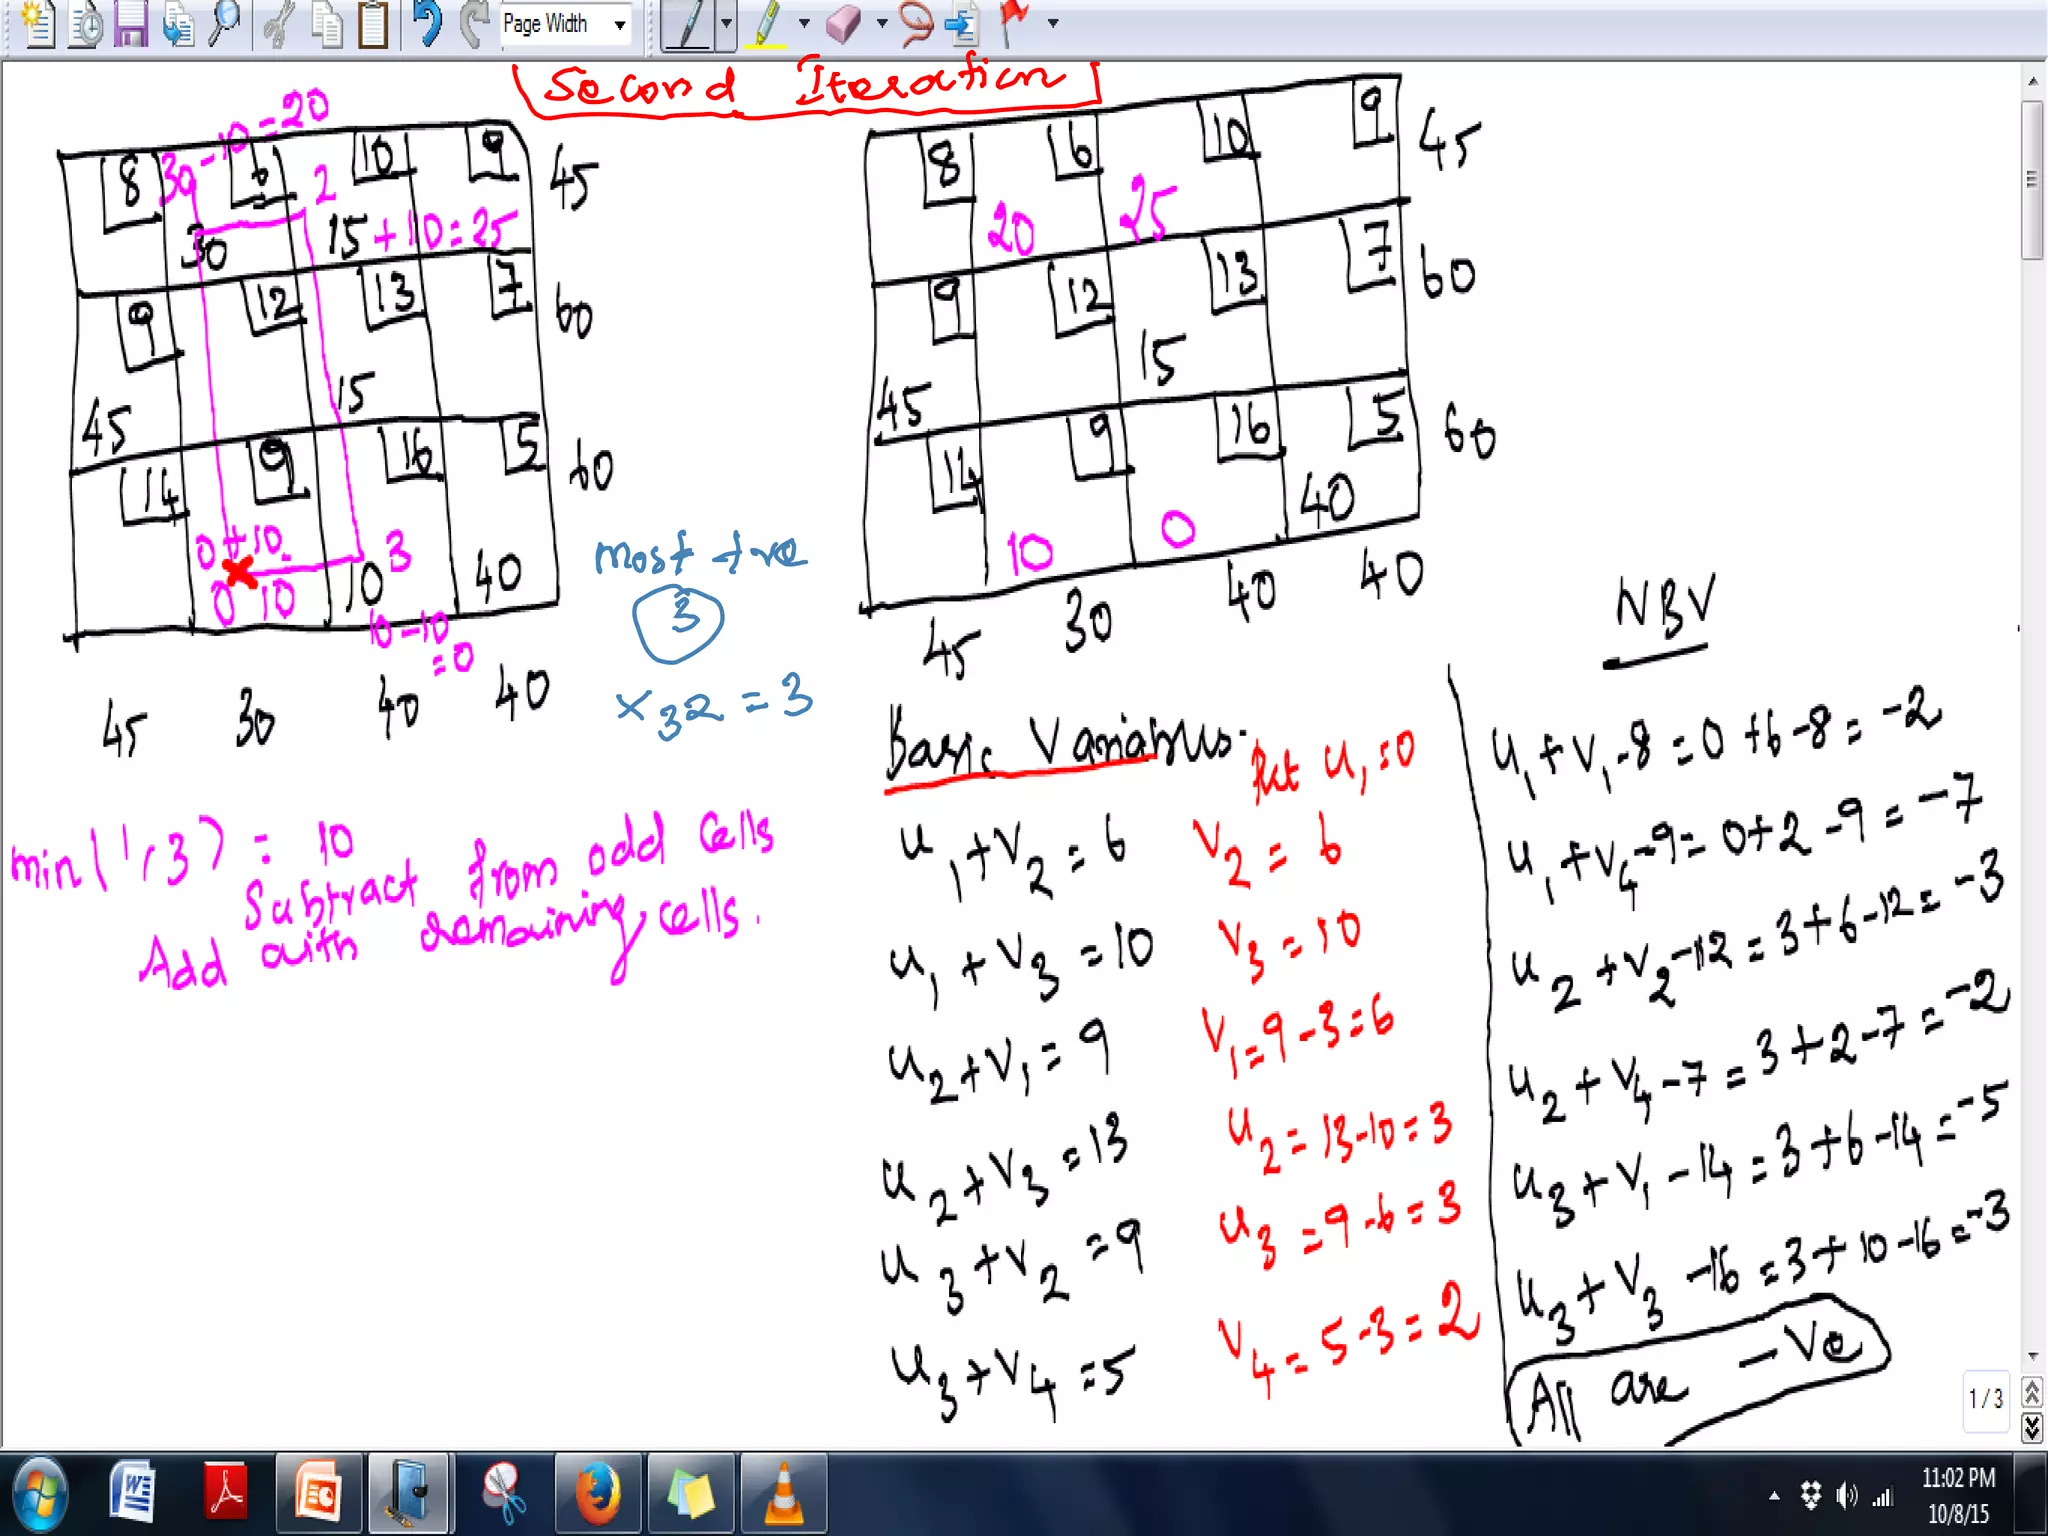 Page Width
Second Iteration
30 - 10 = 20
8 6 2 10 9 45
30 15 + 10 = 25
9 12 13 7 60
45 15
14 9 16 5 60
0 + 10 3
0 10 10 40
10 - 10
= 0
45 30 40 40
most +ve
3
x32 = 3
min(1,3) = 10
Subtract from odd cells
Add with remaining cells.
8 6 10 9 45
20 25
9 12 13 7 60
45 15
14 9 16 5 60
10 0 40
45 30 40 40
Basic Variables.
Put u1 = 0
u1 + v2 = 6 v2 = 6
u1 + v3 = 10 v3 = 10
u2 + v1 = 9 v1 = 9 - 3 = 6
u2 + v3 = 13 u2 = 13 - 10 = 3
u3 + v2 = 9 u3 = 9 - 6 = 3
u3 + v4 = 5 v4 = 5 - 3 = 2
NBV
u1 + v1 - 8 = 0 + 6 - 8 = -2
u1 + v4 - 9 = 0 + 2 - 9 = -7
u2 + v2 - 12 = 3 + 6 - 12 = -3
u2 + v4 - 7 = 3 + 2 - 7 = -2
u3 + v1 - 14 = 3 + 6 - 14 = -5
u3 + v3 - 16 = 3 + 10 - 16 = -3
All are -ve
1 / 3
11:02 PM
10/8/15